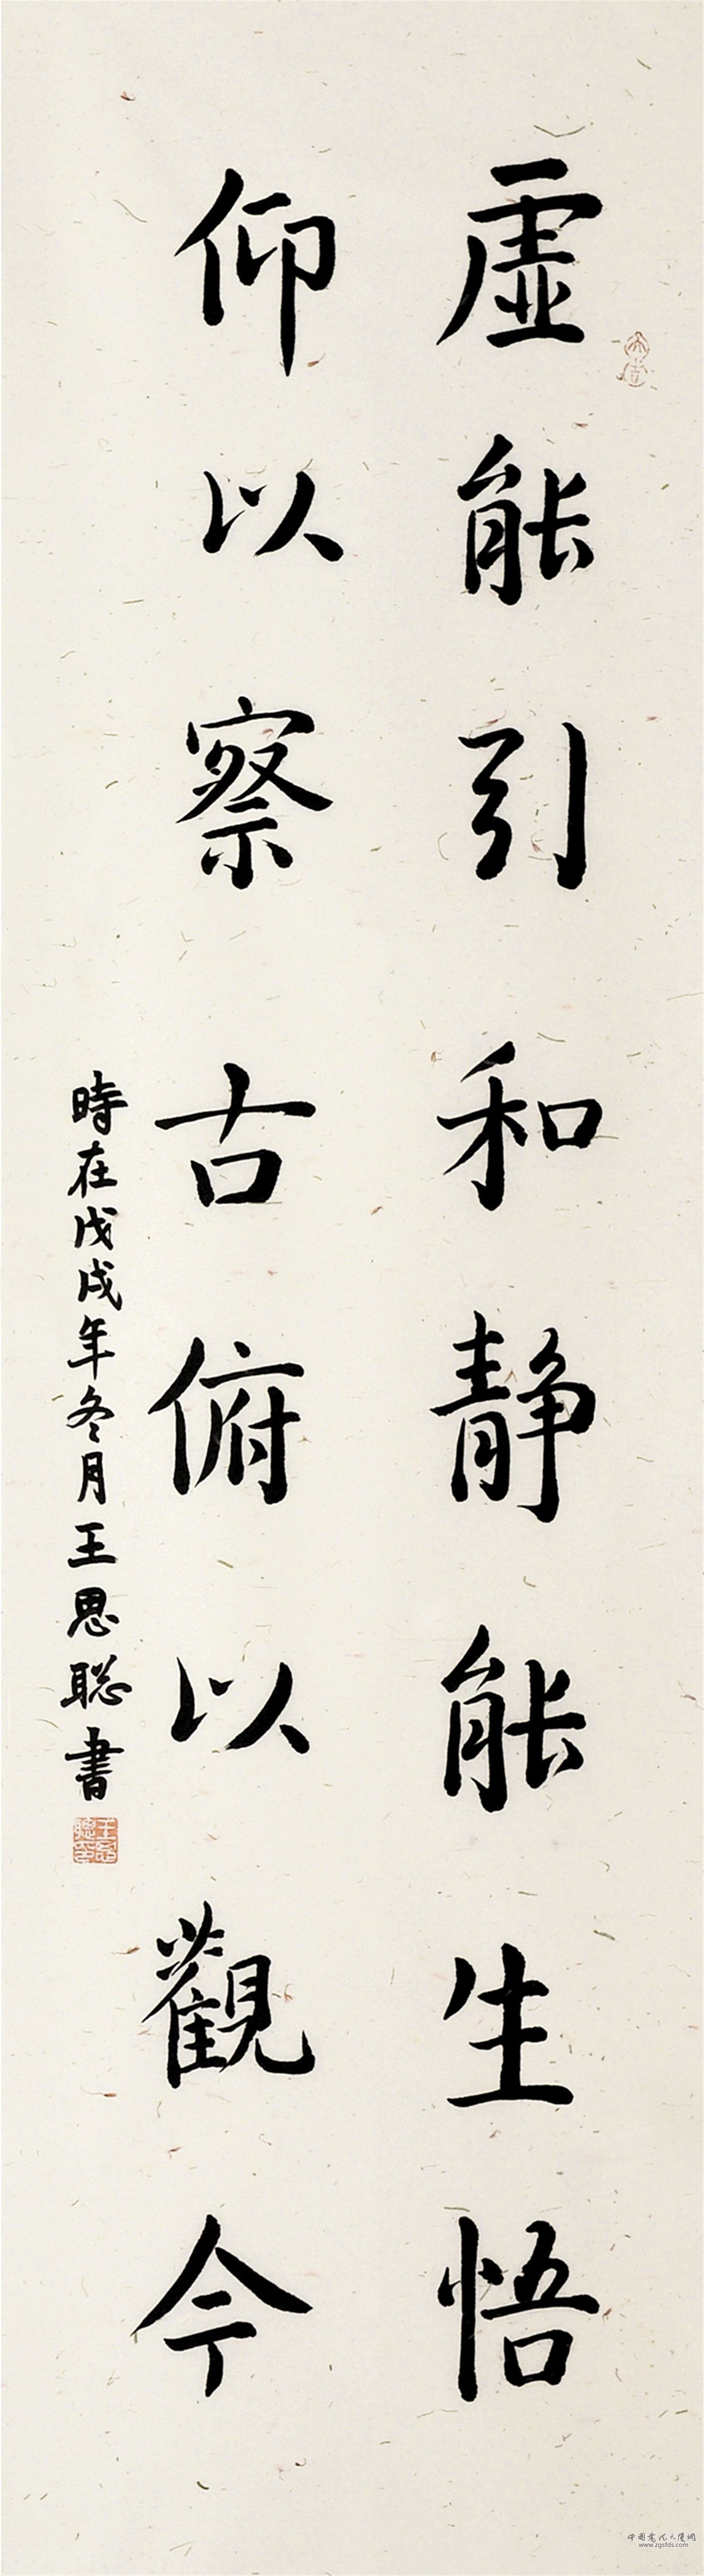 虛能引和靜能生悟
仰以察古俯以觀今
時在戊戌年冬月王思聪書
王思聰印
中国书法人才网
www.zgsfds.com